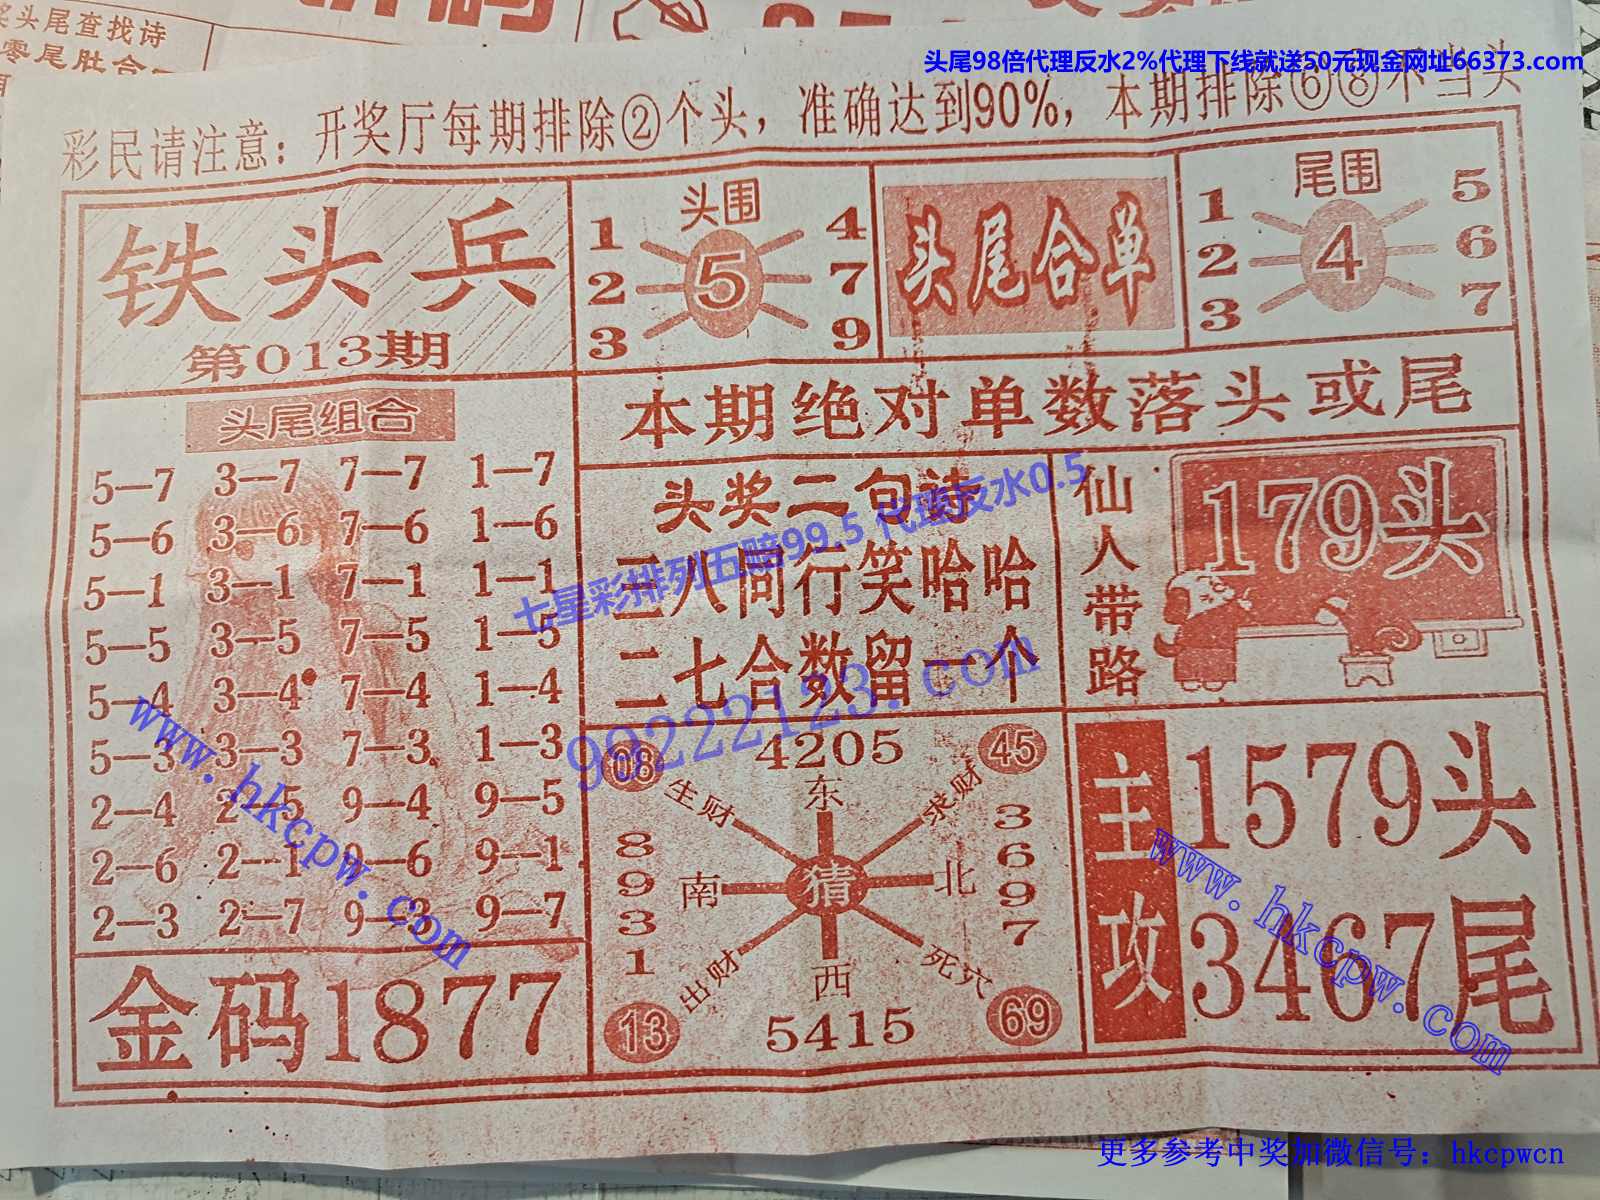 奖头尾查找诗
零尾肚合
头尾98倍代理反水2%代理下线就送50元现金网址66373.com
彩民请注意：开奖厅每期排除②个头，准确达到90%，本期排除⑥⑧不当头
铁头兵
第013期
头围
1 4
2 5 7
3 9
头尾合单
尾围
1 5
2 4 6
3 7
本期绝对单数落头或尾
头尾组合
5—7 3—7 7—7 1—7
5—6 3—6 7—6 1—6
5—1 3—1 7—1 1—1
5—5 3—5 7—5 1—5
5—4 3—4 7—4 1—4
5—3 3—3 7—3 1—3
2—4 2—5 9—4 9—5
2—6 2—1 9—6 9—1
2—3 2—7 9—3 9—7
金码1877
头奖二句诗
三八同行笑哈哈
二七合数留一个
七星彩排列五赔99.5 代理反水0.5
90222123.com
仙人带路
179头
08 4205 45
生财 东 求财
8931 南 猜 北 3697
出财 西 死穴
13 5415 69
主攻
1579头
3467尾
www.hkcpw.com
www.hkcpw.com
更多参考中奖加微信号：hkcpwcn